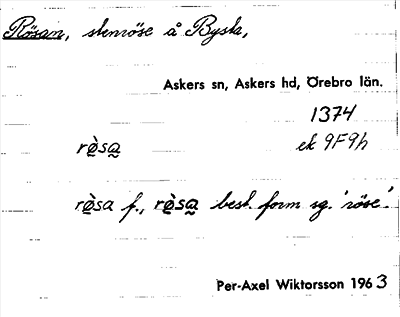 Rösan, stenröse å Bysta,
Askers sn, Askers hd, Örebro län.
1374
rø̀sa ek 9F9h
rø̀sa f., rø̀sa best. form sg. 'röse'.
Per-Axel Wiktorsson 1963